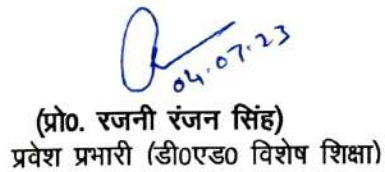 04.07.23
(प्रो0. रजनी रंजन सिंह)
प्रवेश प्रभारी (डी0एड0 विशेष शिक्षा)